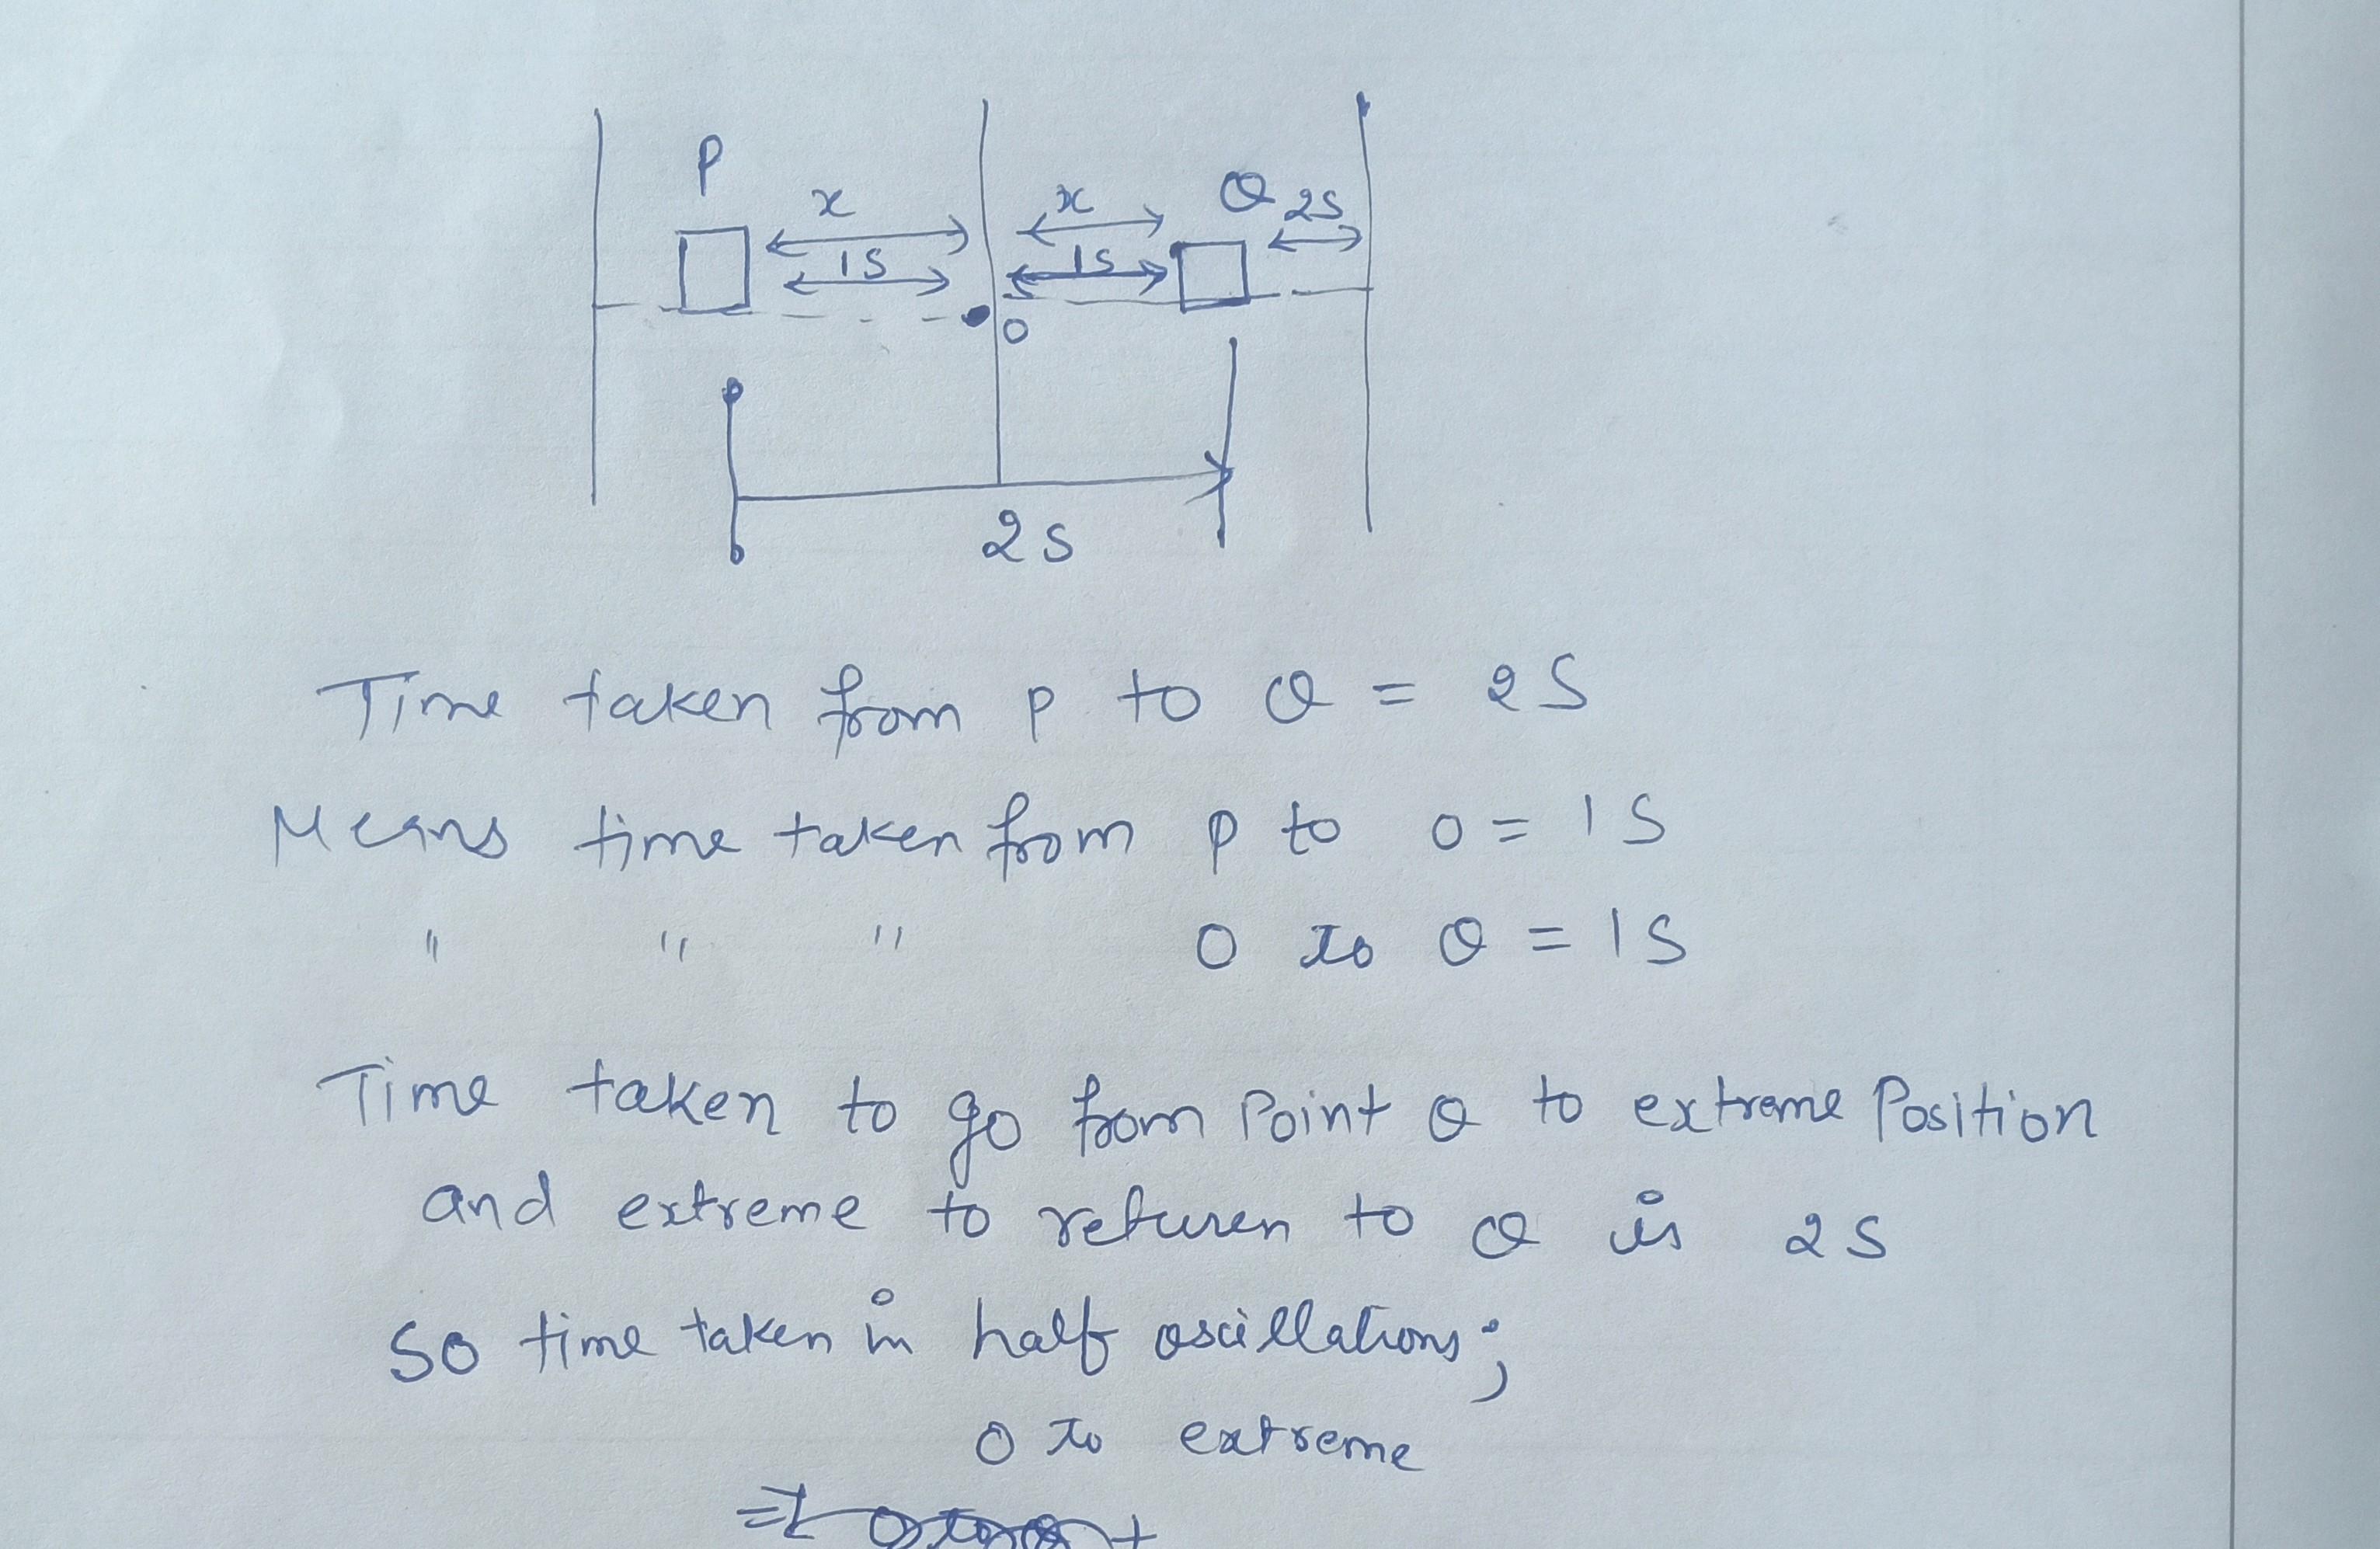 P
x
x
Q
2s
1s
1s
0
2s
Time taken from P to Q = 2s
Means time taken from P to 0 = 1s
" " " 0 to Q = 1s
Time taken to go from Point Q to extreme Position
and extreme to returen to Q is 2s
so time taken in half oscillations;
0 to extreme